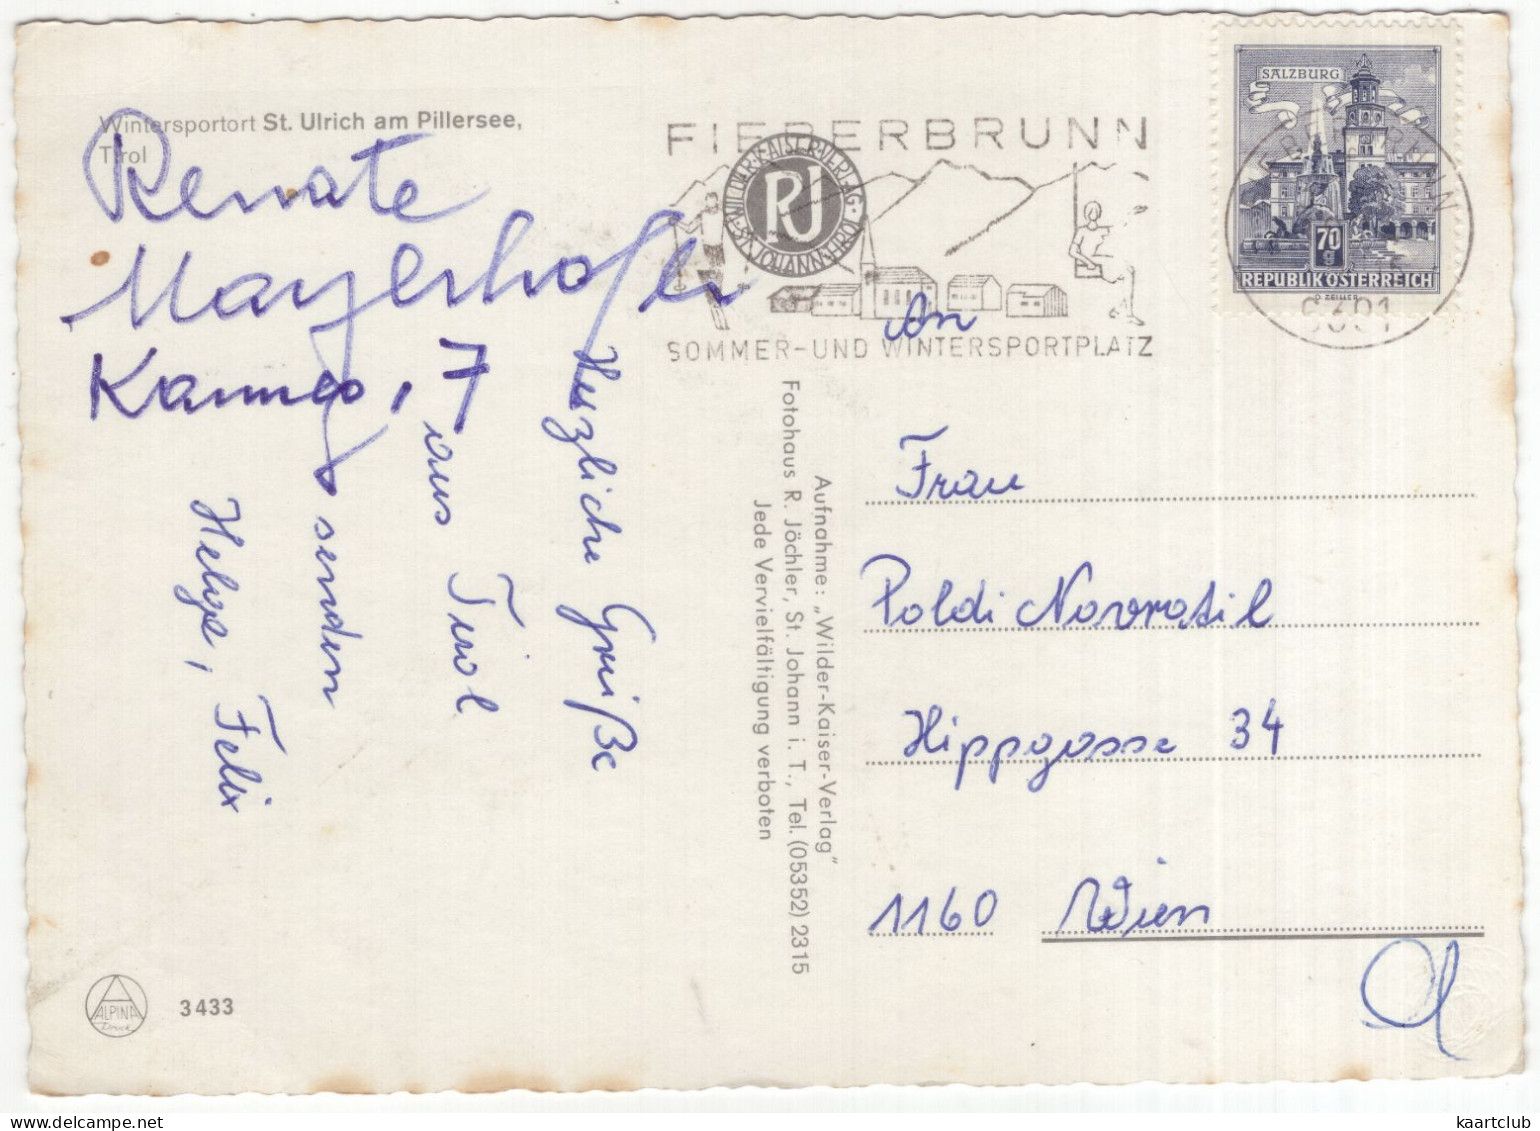 Wintersportort St. Ulrich am Pillersee,
Tirol
Renate
Mayerhofer
7
Herzliche Grüße
aus Tirol
senden
Helga, Felix
ALPINA
Druck
3433
FIEBERBRUNN
SOMMER-UND WINTERSPORTPLATZ
WILDER-KAISER-VERLAG · ST. JOHANN TIROL ·
RJ
Aufnahme: „Wilder-Kaiser-Verlag"
Fotohaus R. Jöchler, St. Johann i. T., Tel. (05352) 2315
Jede Vervielfältigung verboten
SALZBURG
70
g
REPUBLIK ÖSTERREICH
An
Frau
Poldi Novratil
Hippgasse 34
1160 Wien